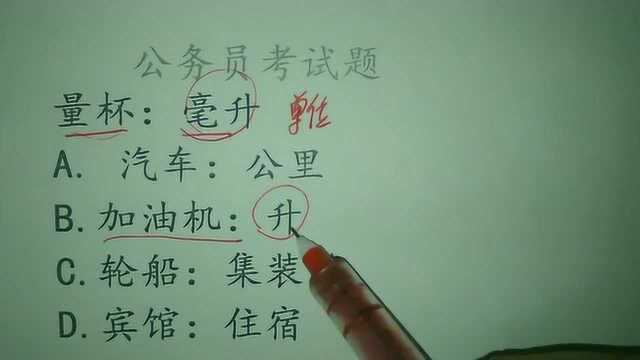 公务员考试题
量杯：毫升 单位
A. 汽车：公里
B.加油机：升
C.轮船：集装
D.宾馆：住宿